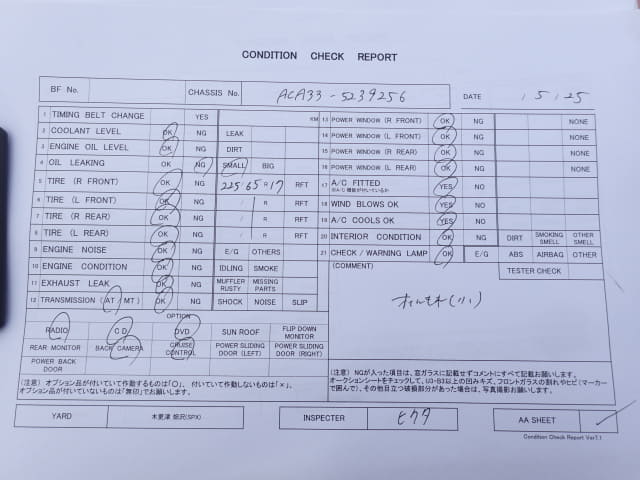 CONDITION CHECK REPORT
BF No. CHASSIS No. ACA33-5239256 DATE / 5 / 25
1 TIMING BELT CHANGE YES KM
2 COOLANT LEVEL OK NG LEAK
3 ENGINE OIL LEVEL OK NG DIRT
4 OIL LEAKING OK NG SMALL BIG
5 TIRE (R FRONT) OK NG 225/65R17 RFT
6 TIRE (L FRONT) OK NG / R RFT
7 TIRE (R REAR) OK NG / R RFT
8 TIRE (L REAR) OK NG / R RFT
9 ENGINE NOISE OK NG E/G OTHERS
10 ENGINE CONDITION OK NG IDLING SMOKE
11 EXHAUST LEAK OK NG MUFFLER RUSTY MISSING PARTS
12 TRANSMISSION (AT / MT) OK NG SHOCK NOISE SLIP
13 POWER WINDOW (R FRONT) OK NG NONE
14 POWER WINDOW (L FRONT) OK NG NONE
15 POWER WINDOW (R REAR) OK NG NONE
16 POWER WINDOW (L REAR) OK NG NONE
17 A/C FITTED YES NO
18 WIND BLOWS OK YES NO
19 A/C COOLS OK YES NO
20 INTERIOR CONDITION OK NG DIRT SMOKING SMELL OTHER SMELL
21 CHECK / WARNING LAMP OK E/G ABS AIRBAG OTHER
(COMMENT) TESTER CHECK
オイルもれ(小)
OPTION
RADIO CD DVD SUN ROOF FLIP DOWN MONITOR
REAR MONITOR BACK CAMERA CRUISE CONTROL POWER SLIDING DOOR (LEFT) POWER SLIDING DOOR (RIGHT)
POWER BACK DOOR
(注意) オプション品が付いていて作動するものは「○」、付いていて作動しないものは「×」、
オプション品が付いていないものは「無印」でお願いします。
(注意) NGが入った項目は、窓ガラスに記載せずコメントにすべて記載お願いします。
オークションシートをチェックして、U3・B3以上の凹みキズ、フロントガラスの割れやヒビ(マーカー
で囲んで)、その他目立つ破損部分があった場合は、写真撮影お願いします。
YARD 木更津 畑沢(SPX) INSPECTER ヒクタ AA SHEET ✓
Condition Check Report Ver7.1